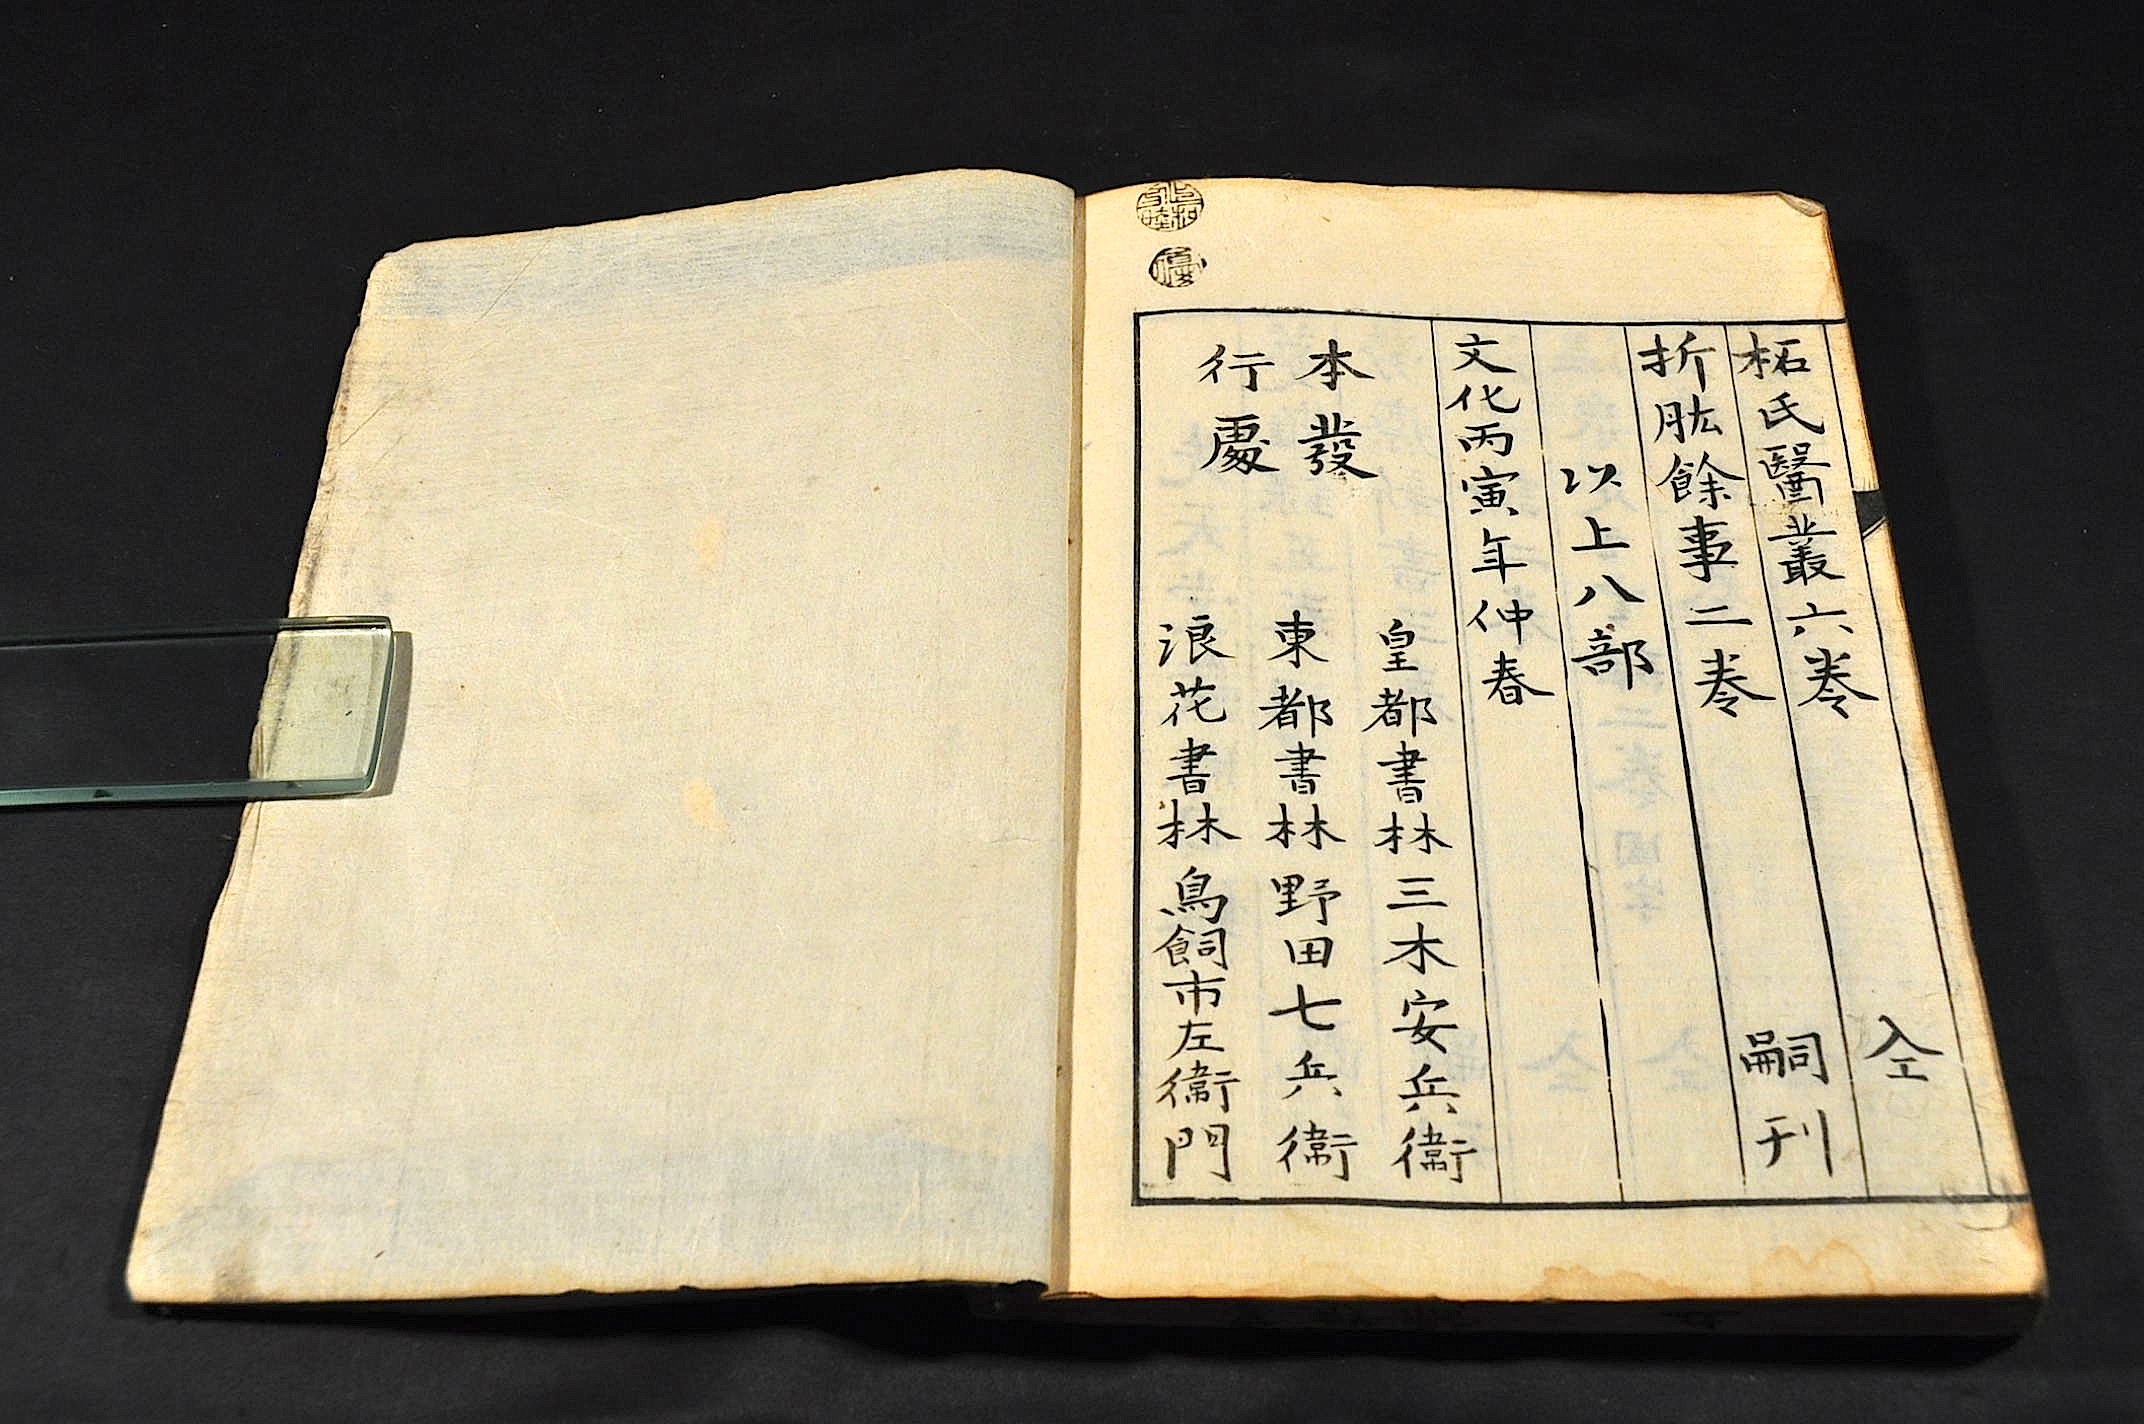 柘氏醫叢六巻 仝
折肱餘事二巻 嗣刊
以上八部
文化丙寅年仲春
本發
行處
皇都書林 三木安兵衛
東都書林 野田七兵衛
浪花書林 鳥飼市左衛門